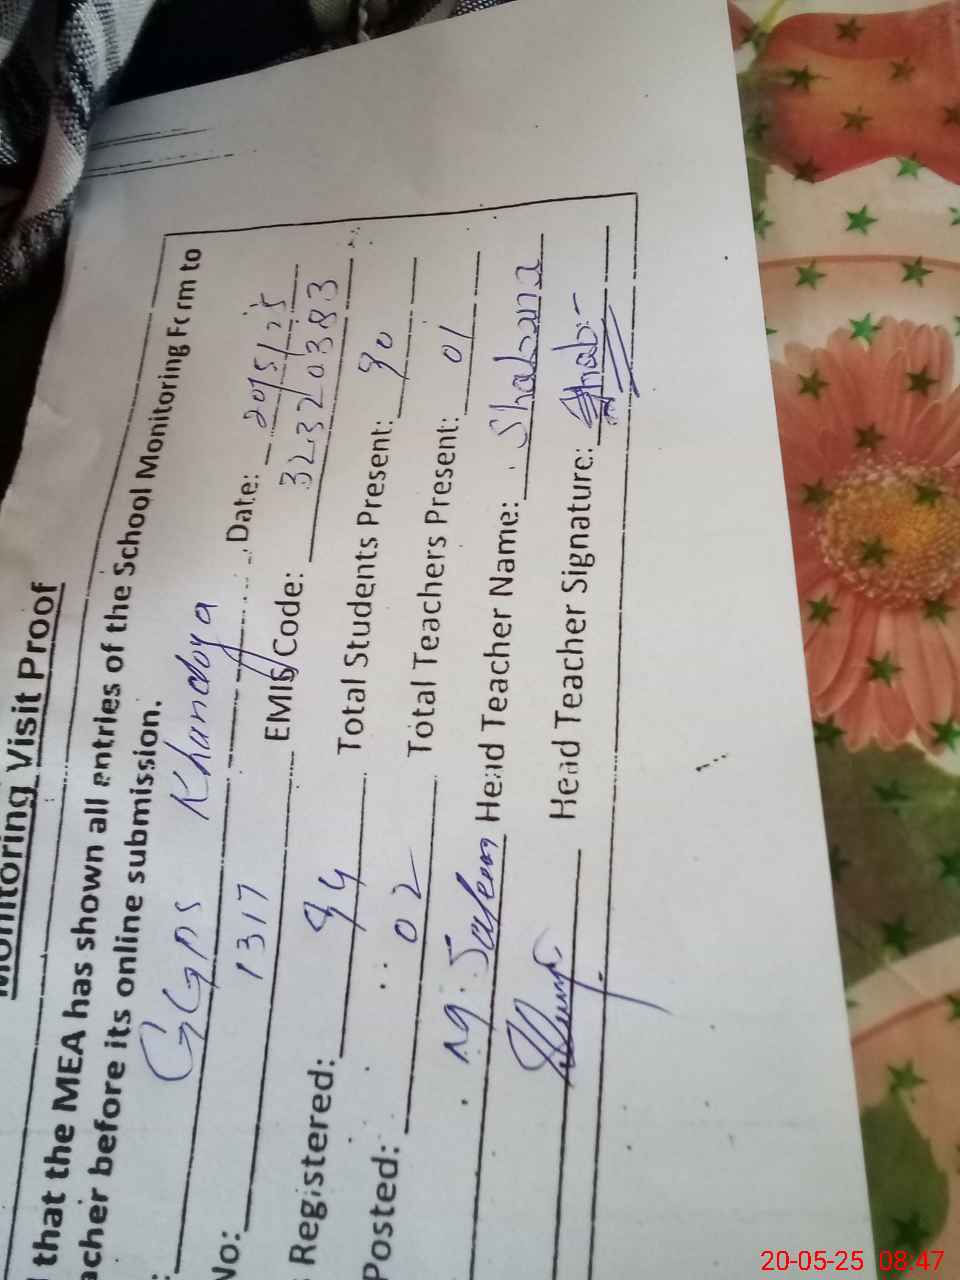 Monitoring Visit Proof
that the MEA has shown all entries of the School Monitoring Form to
acher before its online submission.
: GGPS Khandoya Date: 20/5/25
No: 1317 EMIS Code: 32320383
Registered: 94 Total Students Present: 90
Posted: 02 Total Teachers Present: 01
M. Saleem Head Teacher Name: Shabana
Head Teacher Signature: Shab
20-05-25 08:47